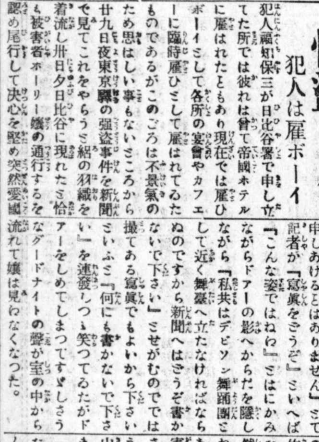 犯人は雇ボーイ
犯人福知保三が日比谷署で申し立
てた所では彼れは曾て帝國ホテル
に雇はれたともあり現在では雇ひ
ボーイとして各所の宴會やカフエ
ーに臨時雇ひとして雇はれてゐた
ものであるがこのごろは不景氣の
ため思はしい事もないところから
廿九日夜東京驛の强盜事件を新聞
で見てこれをやらうと紺の羽織を
着流し卅日夕日比谷に現れたと恰
も被害者ホーリー孃の通行するを
認め尾行して決心を堅め突然愛國
申しあけるとはありません』とて
記者が『寫眞をどうぞ』といへば
『こんな姿ではねわ』とはにかみ
ながらドアーの影へからだを隱し
ながら『私共はデビソン舞踊團と
して近く舞臺へ立たなければなら
ぬのですから新聞へはどうぞ書か
ないで下さい』とせがむのででは
撮てある寫眞でもよいから下さい
といふと『何にも書かないで下さ
い』を連發しつゝ笑つてゐたがド
アーをしめてしまつてすとしさう
なグードナイトの聲が室の中から
流れて孃は見わなくなつた。